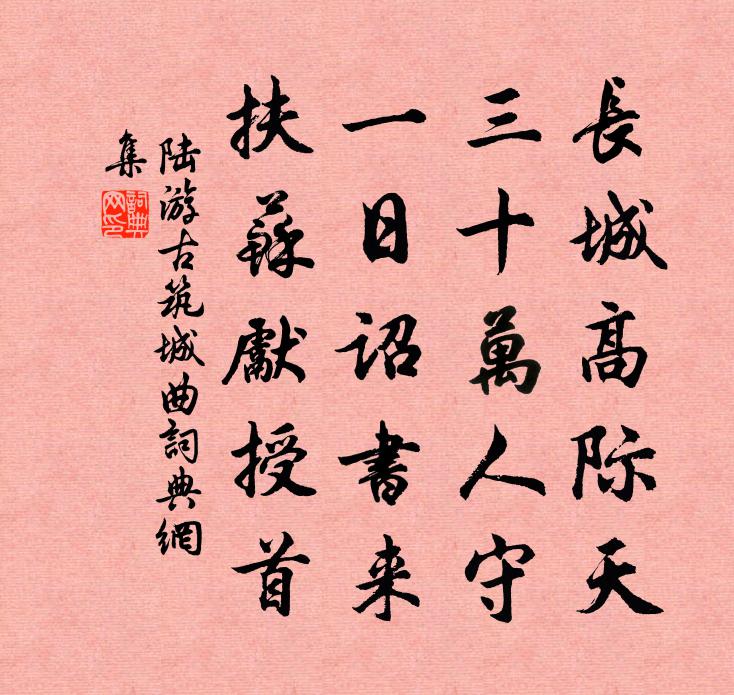 長城高际天
三十萬人守
一日詔書来
扶蘇獻授首
陆游古筑城曲詞典網
集
詞典网印